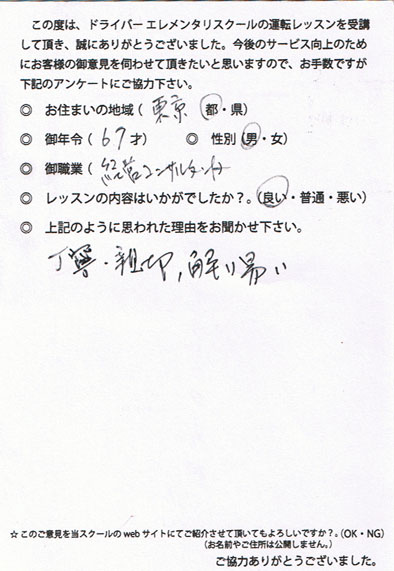 この度は、ドライバー エレメンタリスクールの運転レッスンを受講
して頂き、誠にありがとうございました。今後のサービス向上のため
にお客様の御意見を伺わせて頂きたいと思いますので、お手数ですが
下記のアンケートにご協力下さい。
◎ お住まいの地域 ( 東京 都・県)
◎ 御年令 ( 67 才) ◎ 性別 (男・女)
◎ 御職業 ( 経営コンサルタント
◎ レッスンの内容はいかがでしたか？。(良い・普通・悪い)
◎ 上記のように思われた理由をお聞かせ下さい。
丁寧・親切, 解り易い
☆ このご意見を当スクールの web サイトにてご紹介させて頂いてもよろしいですか？。(OK・NG)
(お名前やご住所は公開しません。)
ご協力ありがとうございました。